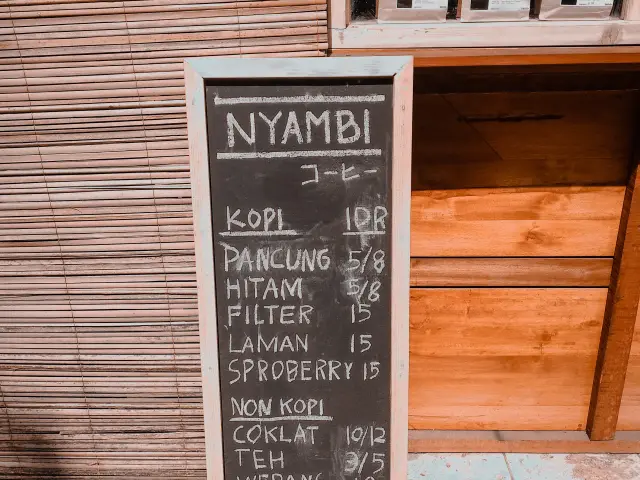 NYAMBI
コーヒー
KOPI IDR
PANCUNG 5/8
HITAM 5/8
FILTER 15
LAMAN 15
SPROBERRY 15
NON KOPI
COKLAT 10/12
TEH 3/5